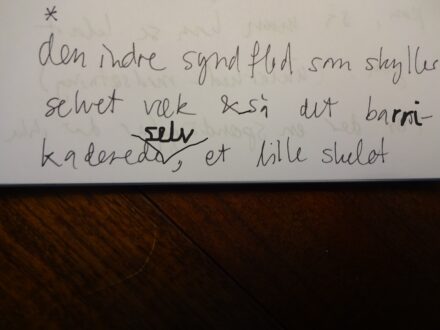 *
den indre syndflod som skyller
selvet væk også det barri-
selv
kaderede, et lille skelet